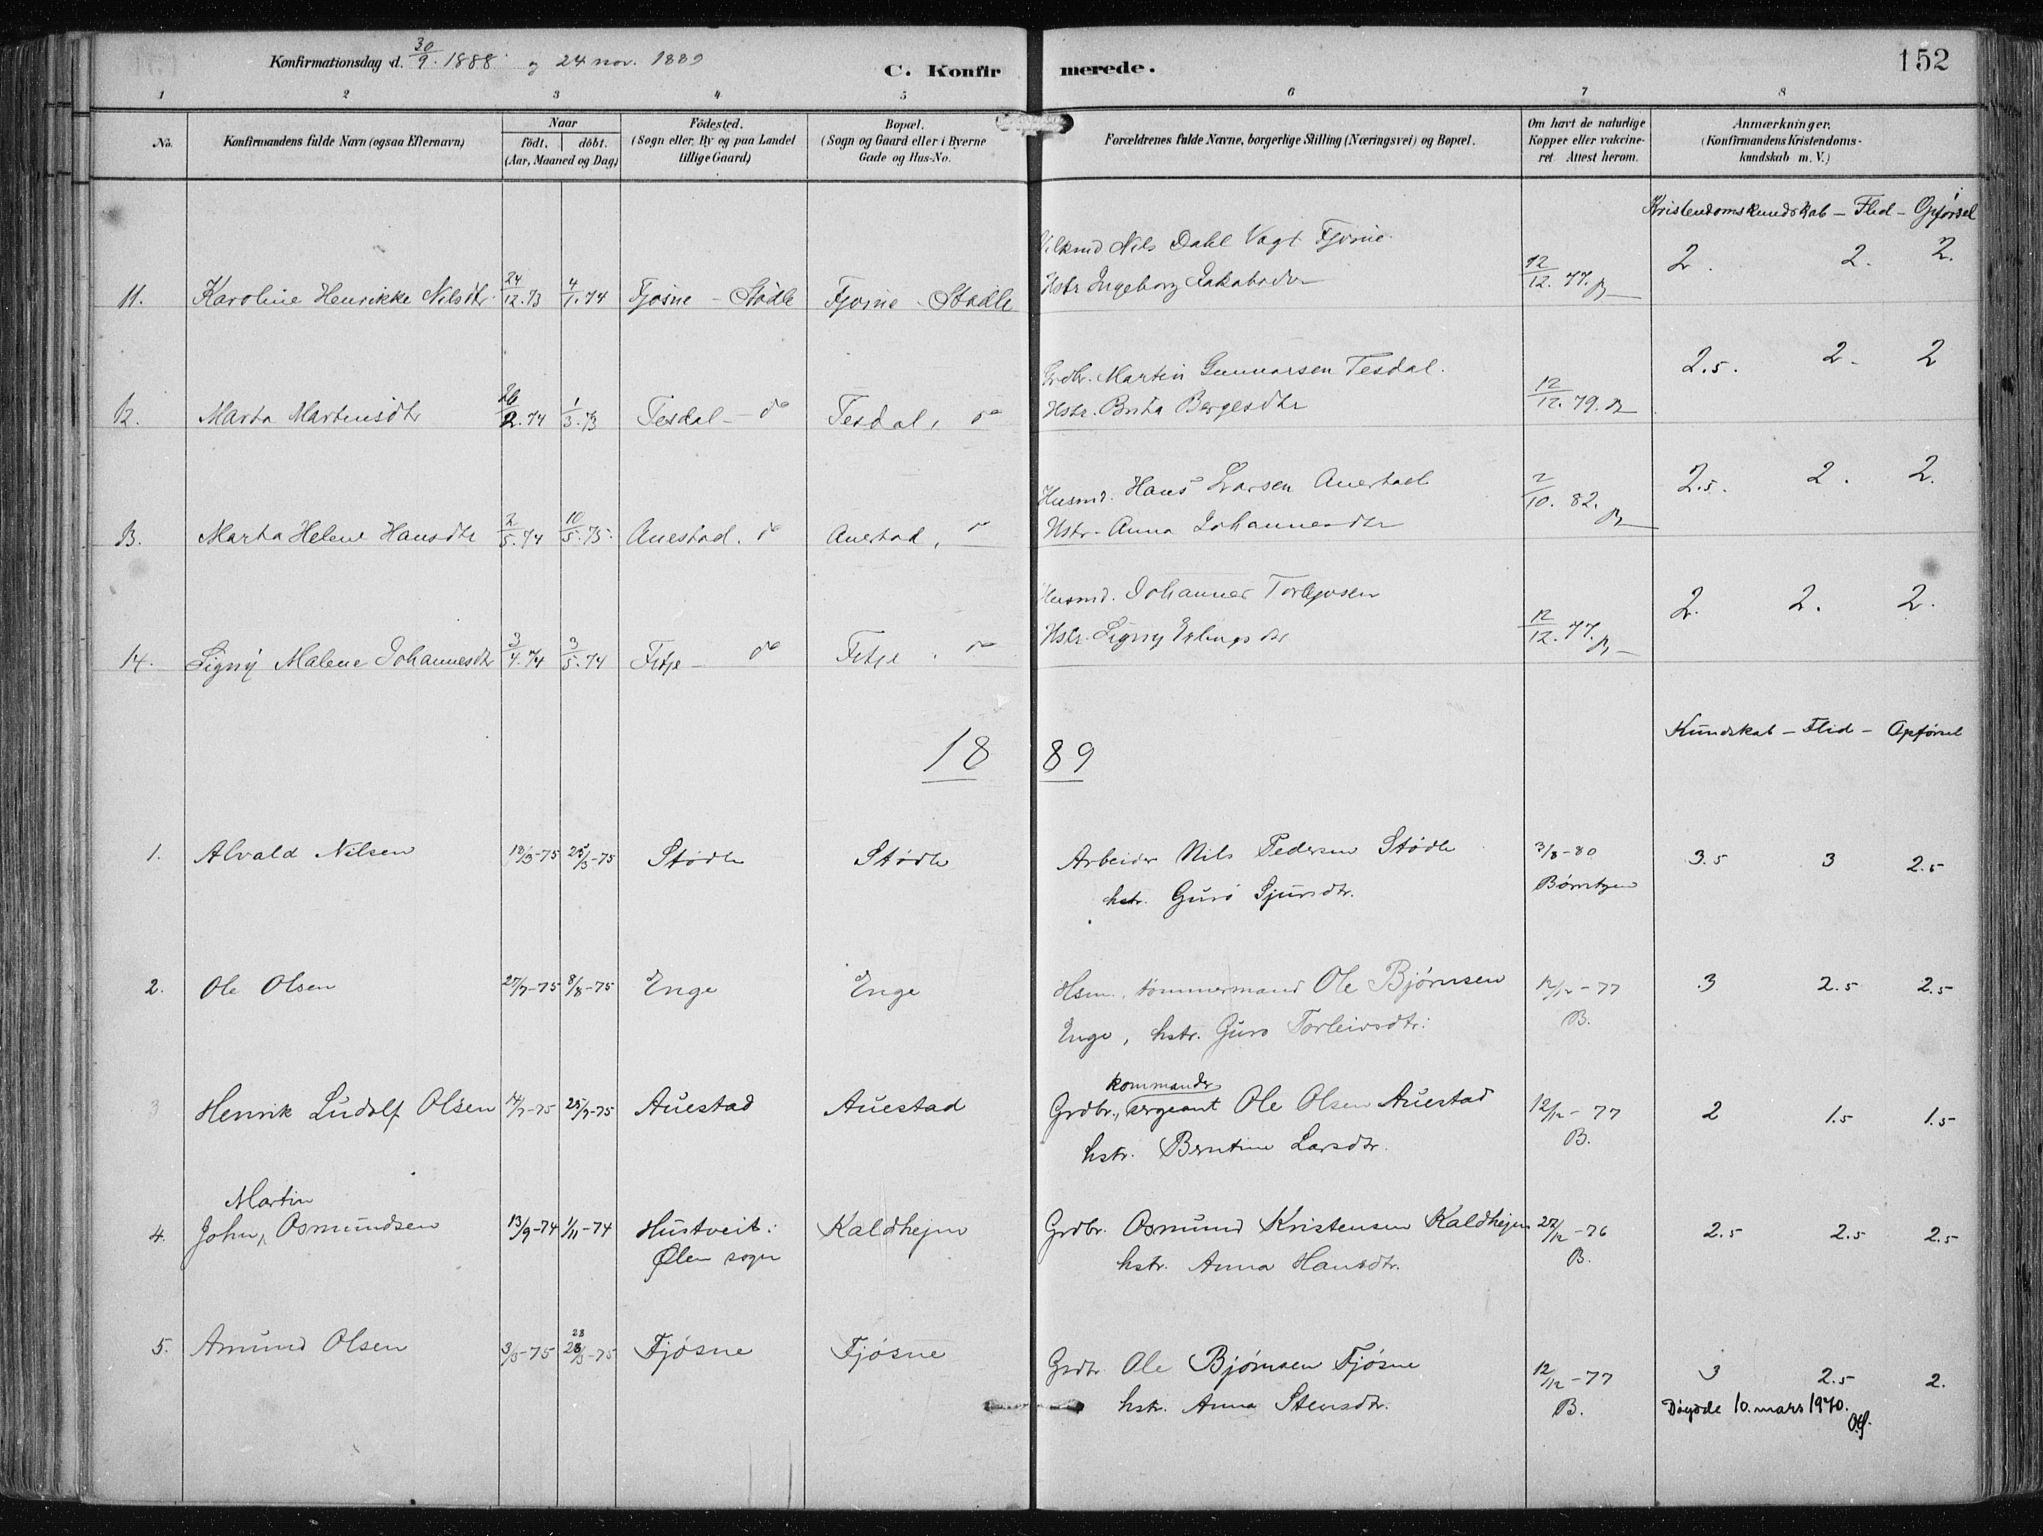 Konfirmationsdag d. 30/9. 1888 og 24 nov. 1889
C. Konfirmerede.
152
1 2 3 4 5 6 7 8
No.
Konfirmandens fulde Navn (ogsaa Efternavn)
Naar
födt. döbt.
(Aar, Maaned og Dag)
Födested.
(Sogn eller By og paa Landet
tillige Gaard)
Bopæl.
(Sogn og Gaard eller i Byerne
Gade og Hus-No.
Forældrenes fulde Navne, borgerlige Stilling (Næringsvei) og Bopæl.
Om havt de naturlige
Kopper eller vakcine-
ret Attest herom.
Anmærkninger.
(Konfirmandens Kristendoms-
kundskab m. V.)
Kristendomskundskab – Flid – Opførsel
Nils Dahl Vagt Fjøsne 2. 2. 2.
11. Karoline Henrikke Nilsdtr. 24/12.73 4/1.74 Fjøsne – Stødle Fjøsne – Stødle Hstr Ingeborg Jakobsdtr 12/12.77.
Grdbr. Martin Gunnarsen Tesdal. 2.5. 2. 2
12. Marta Martinsdtr 26/2.74 1/3.73 Tesdal – do Tesdal, do Hstr. Brita Bergesdtr 12/12.79.
Husmd. Hans Larsen Auestad 2.5. 2. 2.
13. Marta Helene Hansdtr 2/5.74 10/5.75. Auestad. do Auestad, do Hstr. Anna Johannesdtr 2/10.82.
Husmd. Johannes Torbjøsen 2. 2. 2.
14. Signy Malene Johannesdtr 3/4.74 3/5.74 Fitje – do Fitje . do Hstr. Signy Erlingsdtr 12/12.77.
1889
Kundskab – Flid – Opførsel
1. Alvald Nilsen 13/3-75 25/3-75 Stødle Stødle Arbeider Nils Pedersen Stødle 3/8-80 3.5 3 2.5
hstr. Guro Sjursdtr.
2. Ole Olsen 27/7-75 8/8-75 Enge Enge Hsm., tømmermand Ole Bjørnsen 12/12-77 3 2.5 2.5
Enge, hstr. Guro Torleivsdtr. B.
kommander
3 Henrik Ludolf Olsen 14/7-75 25/7-75 Auestad Auestad Grdbr., sergeant Ole Olsen Auestad 12/12-77 2 1.5 1.5
hstr. Berntine Larsdtr. B.
Martin
4. John, Osmundsen 13/9-74 1/11-74 Hustveit. Kaldhejm Grdbr. Osmund Kristensen Kaldhejm 27/12-76 2.5 2.5 2.5
Ølen sogn hstr. Anna Hansdtr. B.
28
5. Amund Olsen 3/5-75 28/3-75 Fjøsne Fjøsne Grdbr Ole Bjørnsen Fjøsne 12/12-77 3 2.5 2.
hstr. Anna Stensdtr. B. Døyde 10. mars 1970.